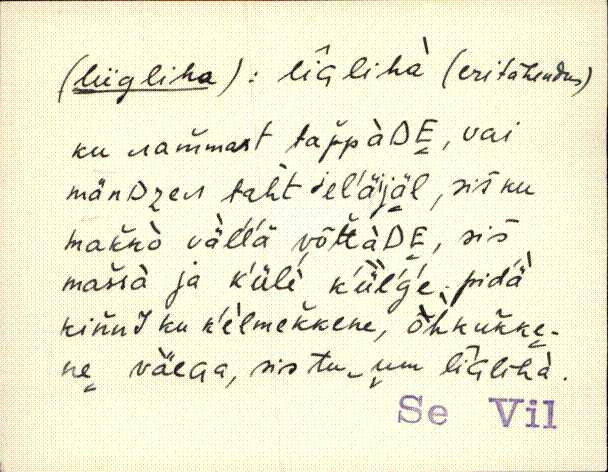 (liigliha): līGlihà (eritähendus)
ku ram̆mast tap̆pàDE̬, vai
mänDzen taht jel'ä'jäl, sis̆ ku
mak̆kò väl'l'ä vȭttàDE̬, sis̆
mas̆sà ja k'ülè k'ül'g'e̬ pidä
kin̆nI ku k'èlmek̆kene, õ̀hkuk̆ke̬-
ne̬ väega, sis tu‿um līGlihà.
Se Vil